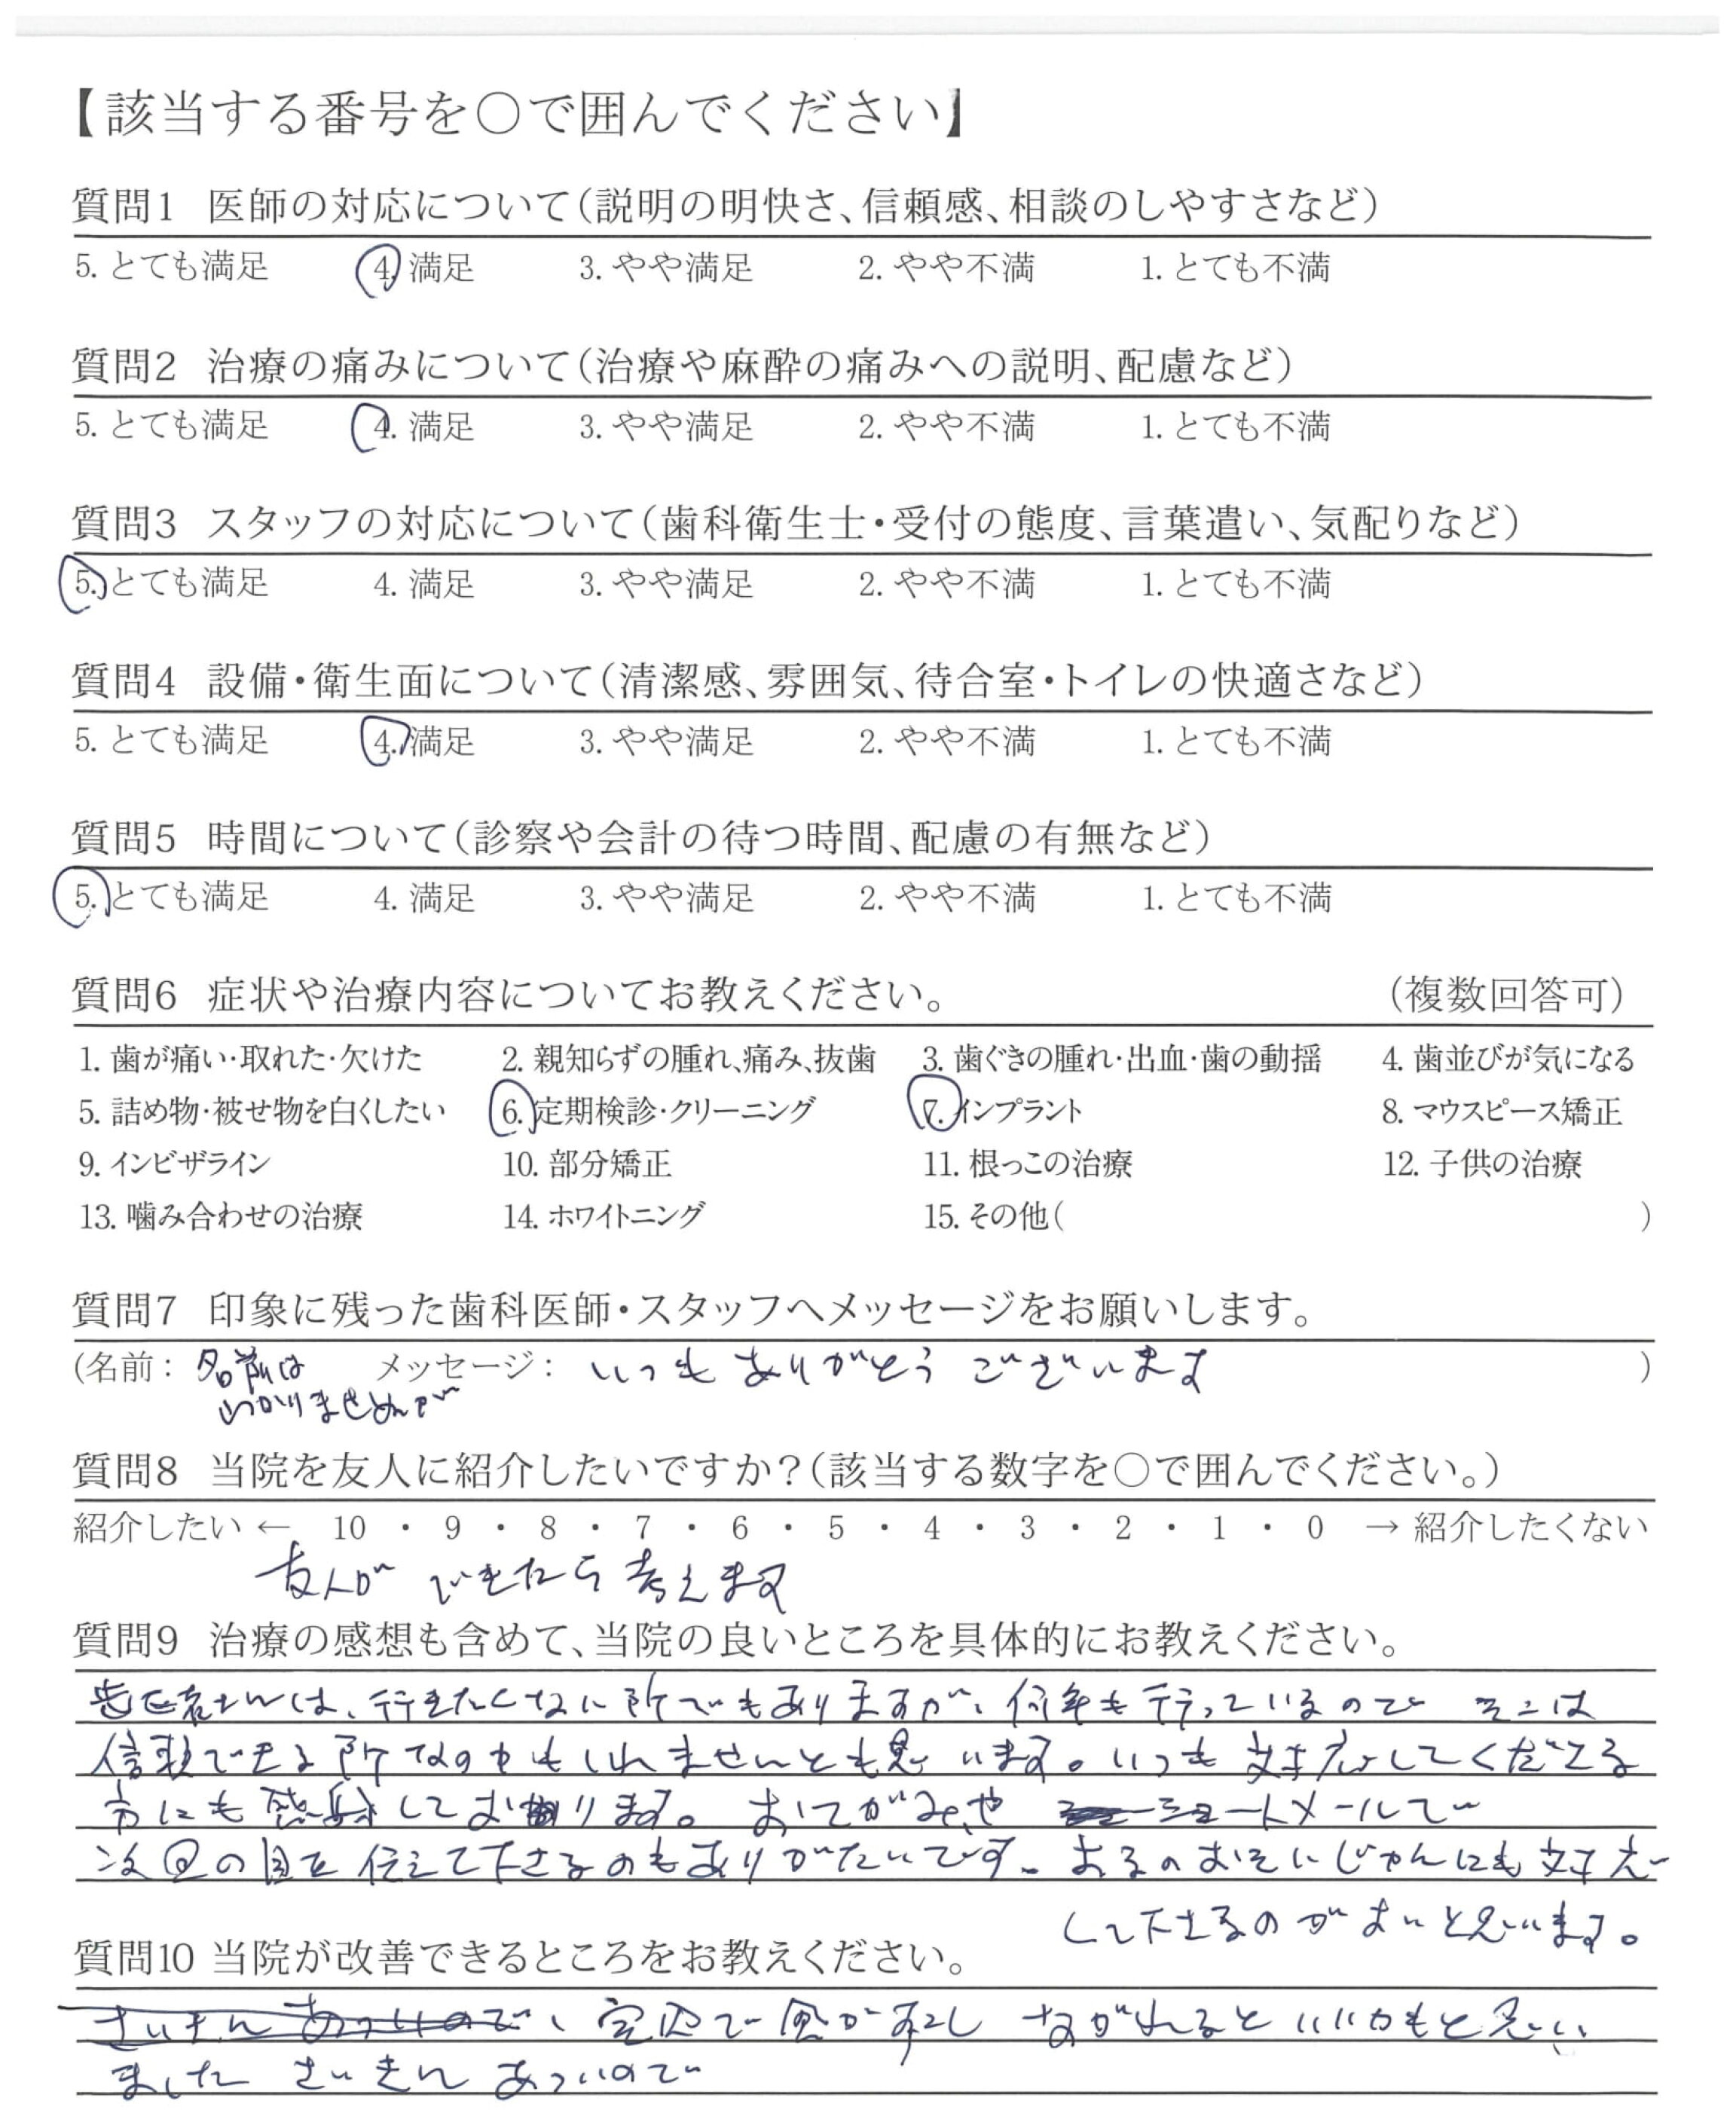 【該当する番号を○で囲んでください】
質問1 医師の対応について(説明の明快さ、信頼感、相談のしやすさなど)
5. とても満足 4. 満足 3. やや満足 2. やや不満 1. とても不満
質問2 治療の痛みについて(治療や麻酔の痛みへの説明、配慮など)
5. とても満足 4. 満足 3. やや満足 2. やや不満 1. とても不満
質問3 スタッフの対応について(歯科衛生士・受付の態度、言葉遣い、気配りなど)
5. とても満足 4. 満足 3. やや満足 2. やや不満 1. とても不満
質問4 設備・衛生面について(清潔感、雰囲気、待合室・トイレの快適さなど)
5. とても満足 4. 満足 3. やや満足 2. やや不満 1. とても不満
質問5 時間について(診察や会計の待つ時間、配慮の有無など)
5. とても満足 4. 満足 3. やや満足 2. やや不満 1. とても不満
質問6 症状や治療内容についてお教えください。 (複数回答可)
1. 歯が痛い・取れた・欠けた 2. 親知らずの腫れ、痛み、抜歯 3. 歯ぐきの腫れ・出血・歯の動揺 4. 歯並びが気になる
5. 詰め物・被せ物を白くしたい 6. 定期検診・クリーニング 7. インプラント 8. マウスピース矯正
9. インビザライン 10. 部分矯正 11. 根っこの治療 12. 子供の治療
13. 噛み合わせの治療 14. ホワイトニング 15. その他( )
質問7 印象に残った歯科医師・スタッフへメッセージをお願いします。
(名前: 名前は メッセージ: いつもありがとうございます )
わかりませんが
質問8 当院を友人に紹介したいですか?(該当する数字を○で囲んでください。)
紹介したい ← 10 ・ 9 ・ 8 ・ 7 ・ 6 ・ 5 ・ 4 ・ 3 ・ 2 ・ 1 ・ 0 → 紹介したくない
友人ができたら考えます
質問9 治療の感想も含めて、当院の良いところを具体的にお教えください。
歯医者さんは、行きたくない所でもありますが、何年も行っているので そこは
信頼できる所なのかもしれませんとも思います。いつも対応してくださる
方にも感謝しております。おてがみや ショートメールで
次回の日を伝えて下さるのもありがたいです。よるのおそいじかんにも対応
して下さるのがよいと思います。
質問10 当院が改善できるところをお教えください。
さいきんあついので、室内で風が少し ながれるといいかもと思い
ました さいきん あついので